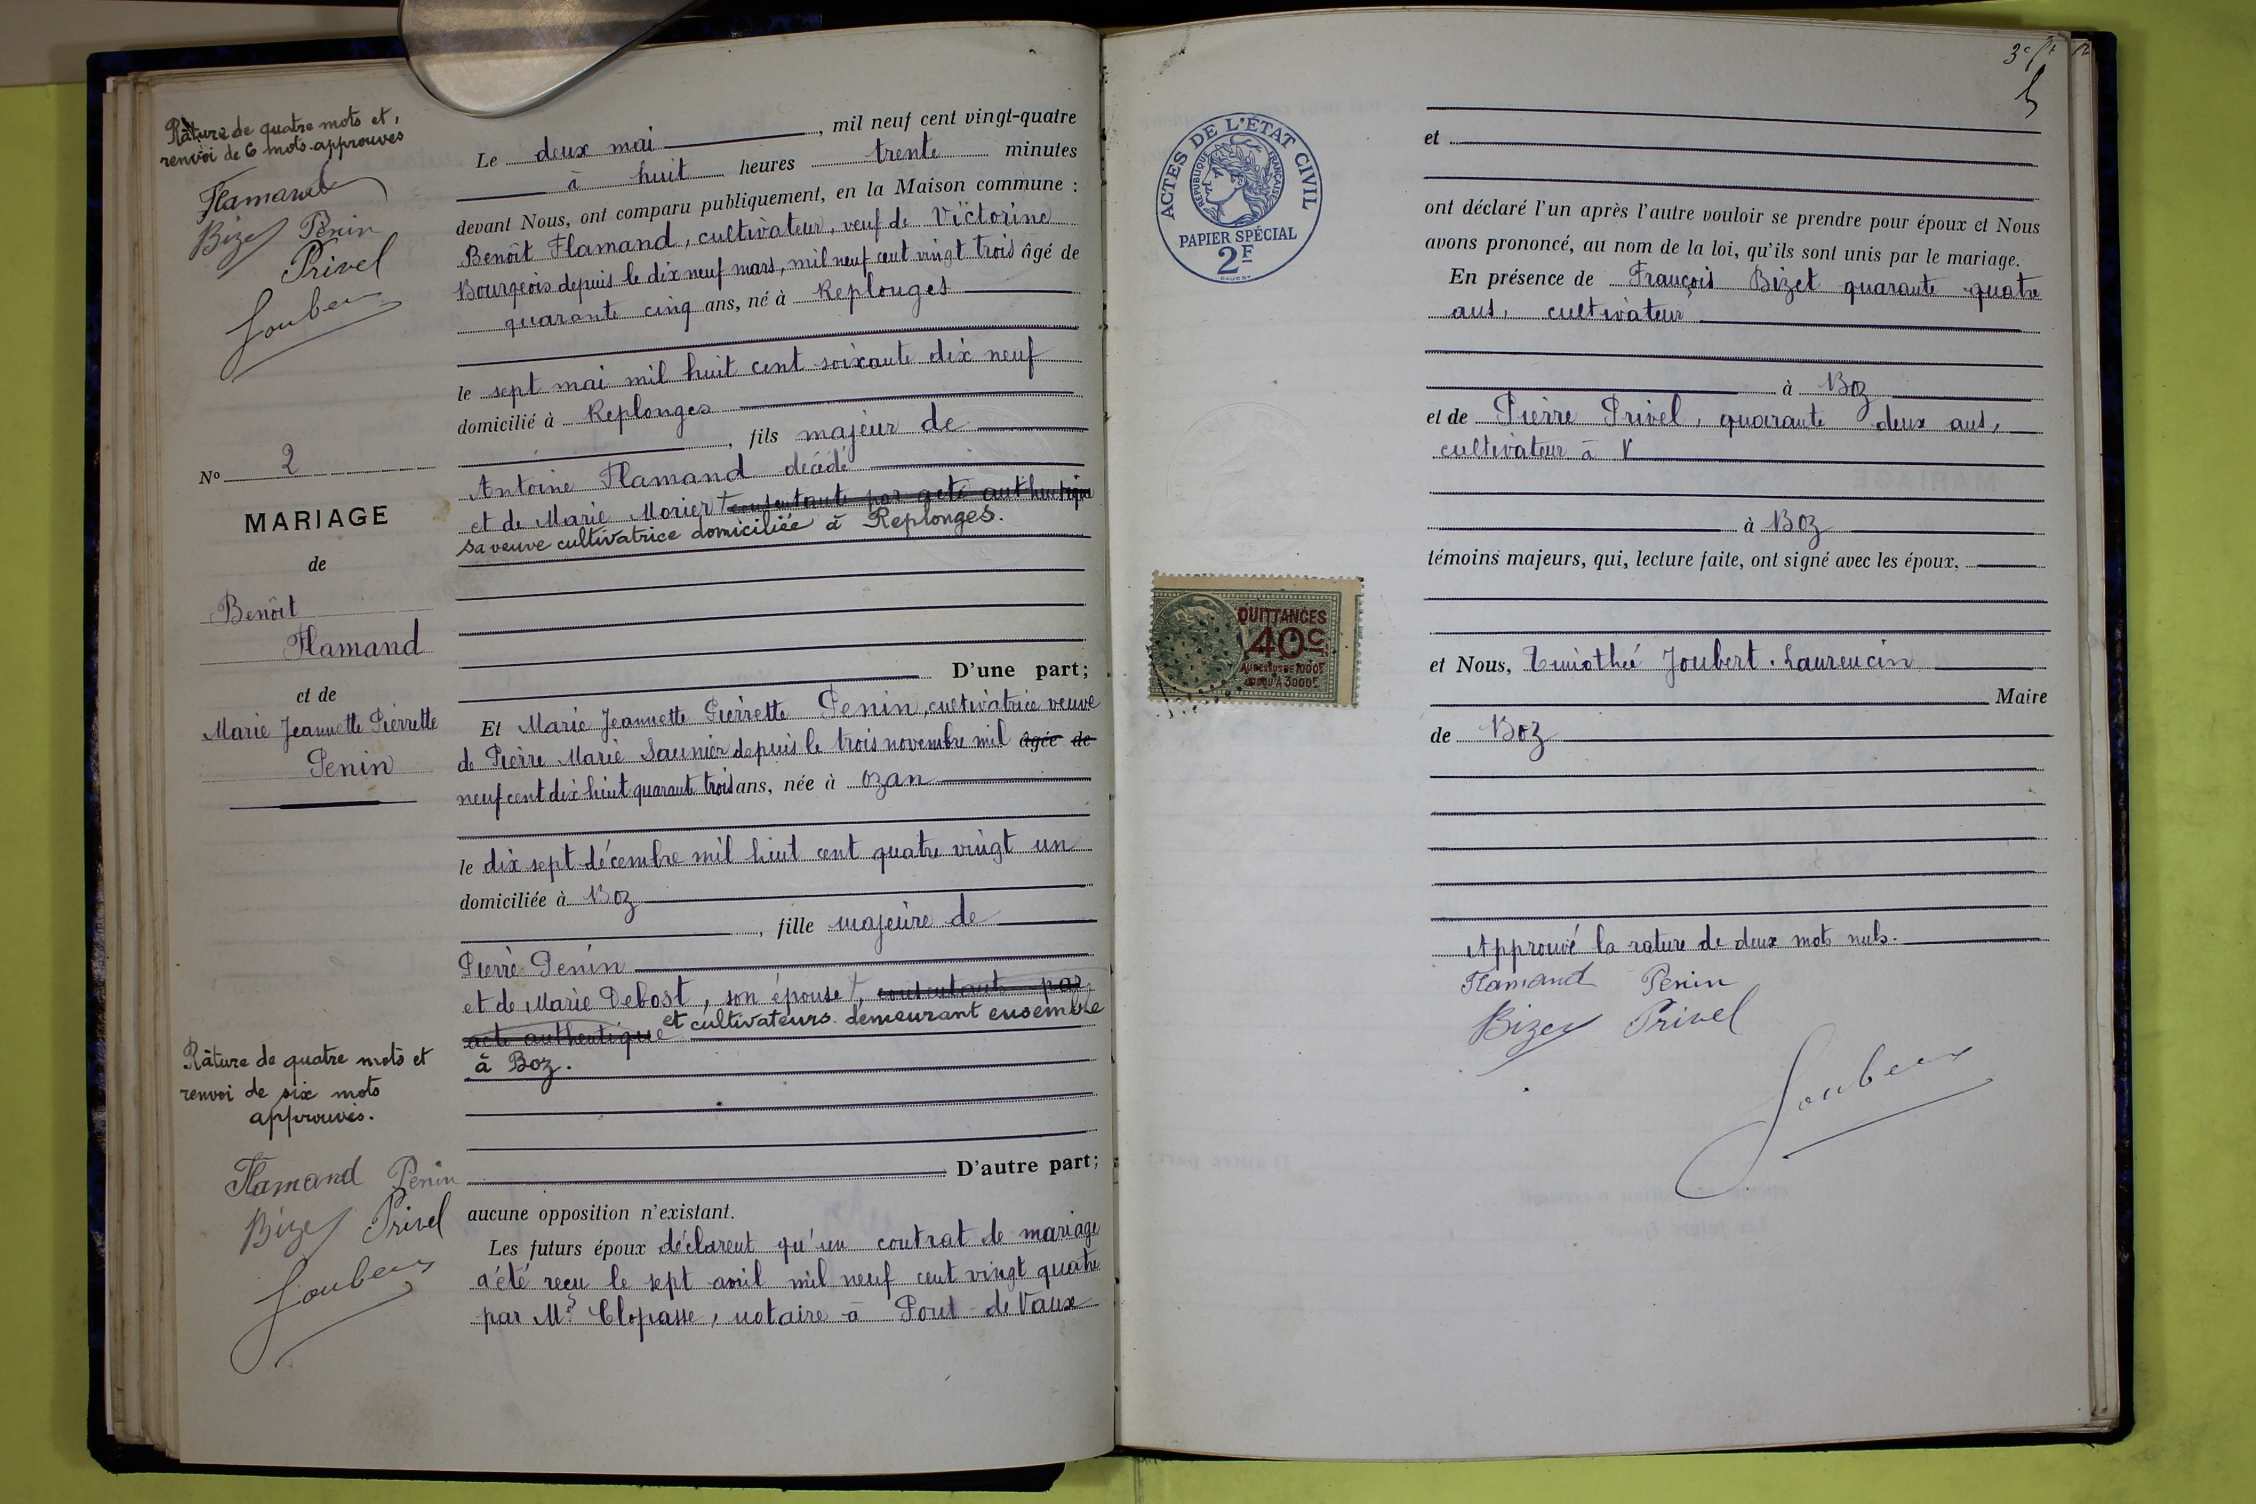 Râture de quatre mots et,
renvoi de 6 mots approuvés
Flamand
Bizet Penin
Privel
Joubert
Nº 2
MARIAGE
de
Benôit
Flamand
et de
Marie Jeannette Pierrette
Penin
Râture de quatre mots et
renvoi de six mots
approuvés.
Flamand Penin
Bizet Privel
Joubert
Le deux mai, mil neuf cent vingt-quatre
à huit heures trente minutes
devant Nous, ont comparu publiquement, en la Maison commune :
Benôit Flamand, cultivateur, veuf de Victorine
Bourgeois depuis le dix neuf mars, mil neuf cent vingt trois âgé de
quarante cinq ans, né à Replonges
le sept mai mil huit cent soixante dix neuf
domicilié à Replonges
, fils majeur de
Antoine Flamand décédé
et de Marie Morier + consentante par acte authentique
sa veuve cultivatrice domiciliée à Replonges.
D'une part;
Et Marie Jeannette Pierrette Penin, cultivatrice veuve
de Pierre Marie Saunier depuis le trois novembre mil âgée de
neuf cent dix huit quarante trois ans, née à Ozan
le dix sept décembre mil huit cent quatre vingt un
domiciliée à Boz
, fille majeure de
Pierre Penin
et de Marie Debost, son épouse +, consentante par
acte authentique et cultivateurs demeurant ensemble
à Boz.
D'autre part;
aucune opposition n'existant.
Les futurs époux déclarent qu'un contrat de mariage
a été reçu le sept avril mil neuf cent vingt quatre
par Me Clopasse, notaire à Pont-de-Vaux
ACTES DE L'ÉTAT CIVIL
REPUBLIQUE FRANÇAISE
PAPIER SPÉCIAL
2F
QUITTANCES
40c
AU DESSUS DE 1000F
JUSQU'A 3000F
5
et
ont déclaré l'un après l'autre vouloir se prendre pour époux et Nous
avons prononcé, au nom de la loi, qu'ils sont unis par le mariage.
En présence de François Bizet quarante quatre
ans, cultivateur
à Boz
et de Pierre Privel, quarante deux ans,
cultivateur à V
à Boz
témoins majeurs, qui, lecture faite, ont signé avec les époux,
et Nous, Timothée Joubert-Laurencin
Maire
de Boz
Approuvé la rature de deux mots nuls.
Flamand Penin
Bizet Privel
Joubert